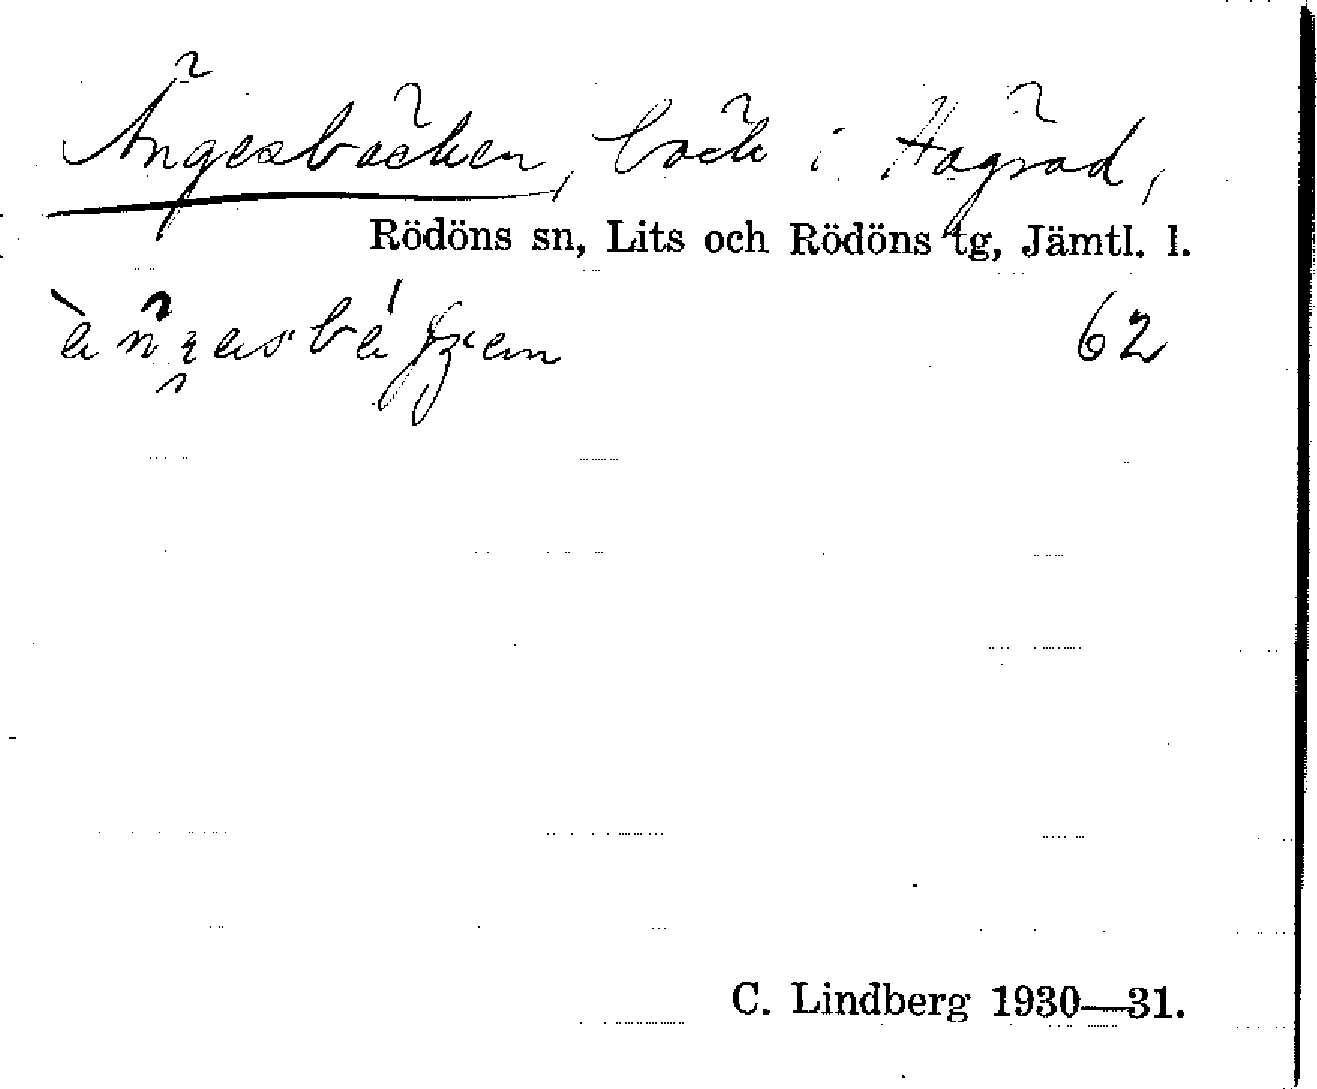 Ängesbäcken, bäck i Hägrad,
Rödöns sn, Lits och Rödöns tg, Jämtl. l.
62
C. Lindberg 1930—31.